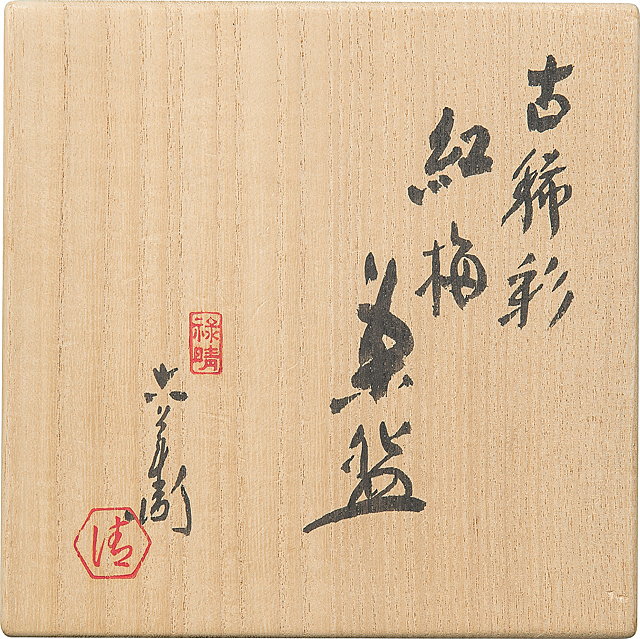 古稀彩
紅梅
茶盌
禄晴
六兵衛
清